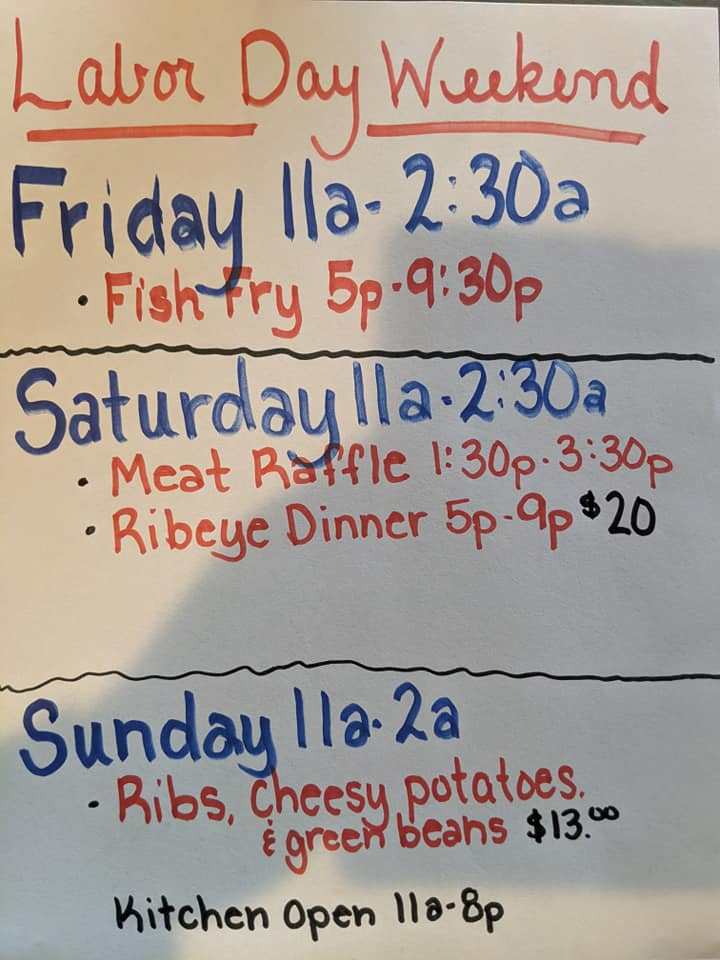 Labor Day Weekend
Friday 11a-2:30a
• Fish Fry 5p-9:30p
Saturday 11a-2:30a
• Meat Raffle 1:30p-3:30p
• Ribeye Dinner 5p-9p $20
Sunday 11a-2a
• Ribs, Cheesy potatoes,
& green beans $13.00
Kitchen Open 11a-8p